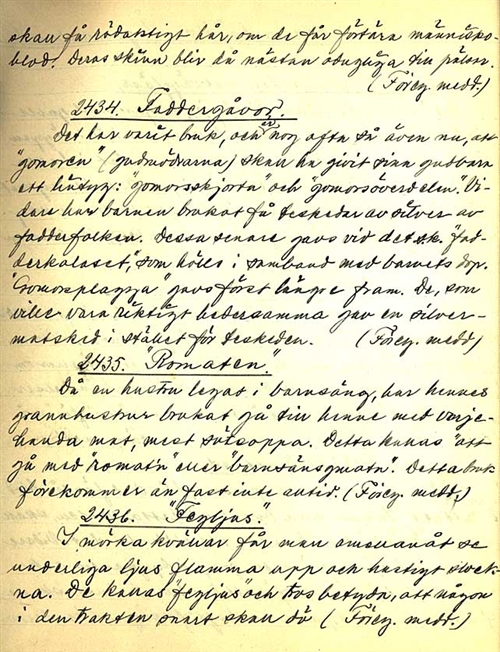 skall få rödaktigt hår, om de får förtära människo-
blod. Deras skinn blir då nästan odugliga till pälsar.
(Föreg. medd.)
2434. Faddergåvor.
Det har varit bruk, och är nog ofta så även nu, att
"gomoren" (gudmödrarna) skall ha givit sina gudbarn
ett lintyg: "gomorsskjorta" och "gomorsöverdelen". Vi-
dare har barnen brukat få teskedar av silver av
fadderfolken. Dessa senare gavs vid det s.k. "fad-
derkalaset", som hölls i samband med barnets dop.
"Gomorsplaggja" gavs först längre fram. De, som
ville vara riktigt hedersamma gav en silver-
matsked i stället för teskeden. (Föreg. medd)
2435. "Romaten."
Då en hustru legat i barnsäng, har hennes
grannhustrur brukat gå till henne med varje-
handa mat, mest sötsoppa. Detta kallas "att
gå med "romat'n" eller "barnsängsmatn". Detta bruk
förekommer än fast inte alltid. (Föreg. medd.)
2436. "Fegljus."
I mörka kvällar får man emellanåt se
underliga ljus flamma upp och hastigt slock-
na. De kallas "fegljus" och tros betyda, att någon
i den trakten snart skall dö (Föreg. medd.)